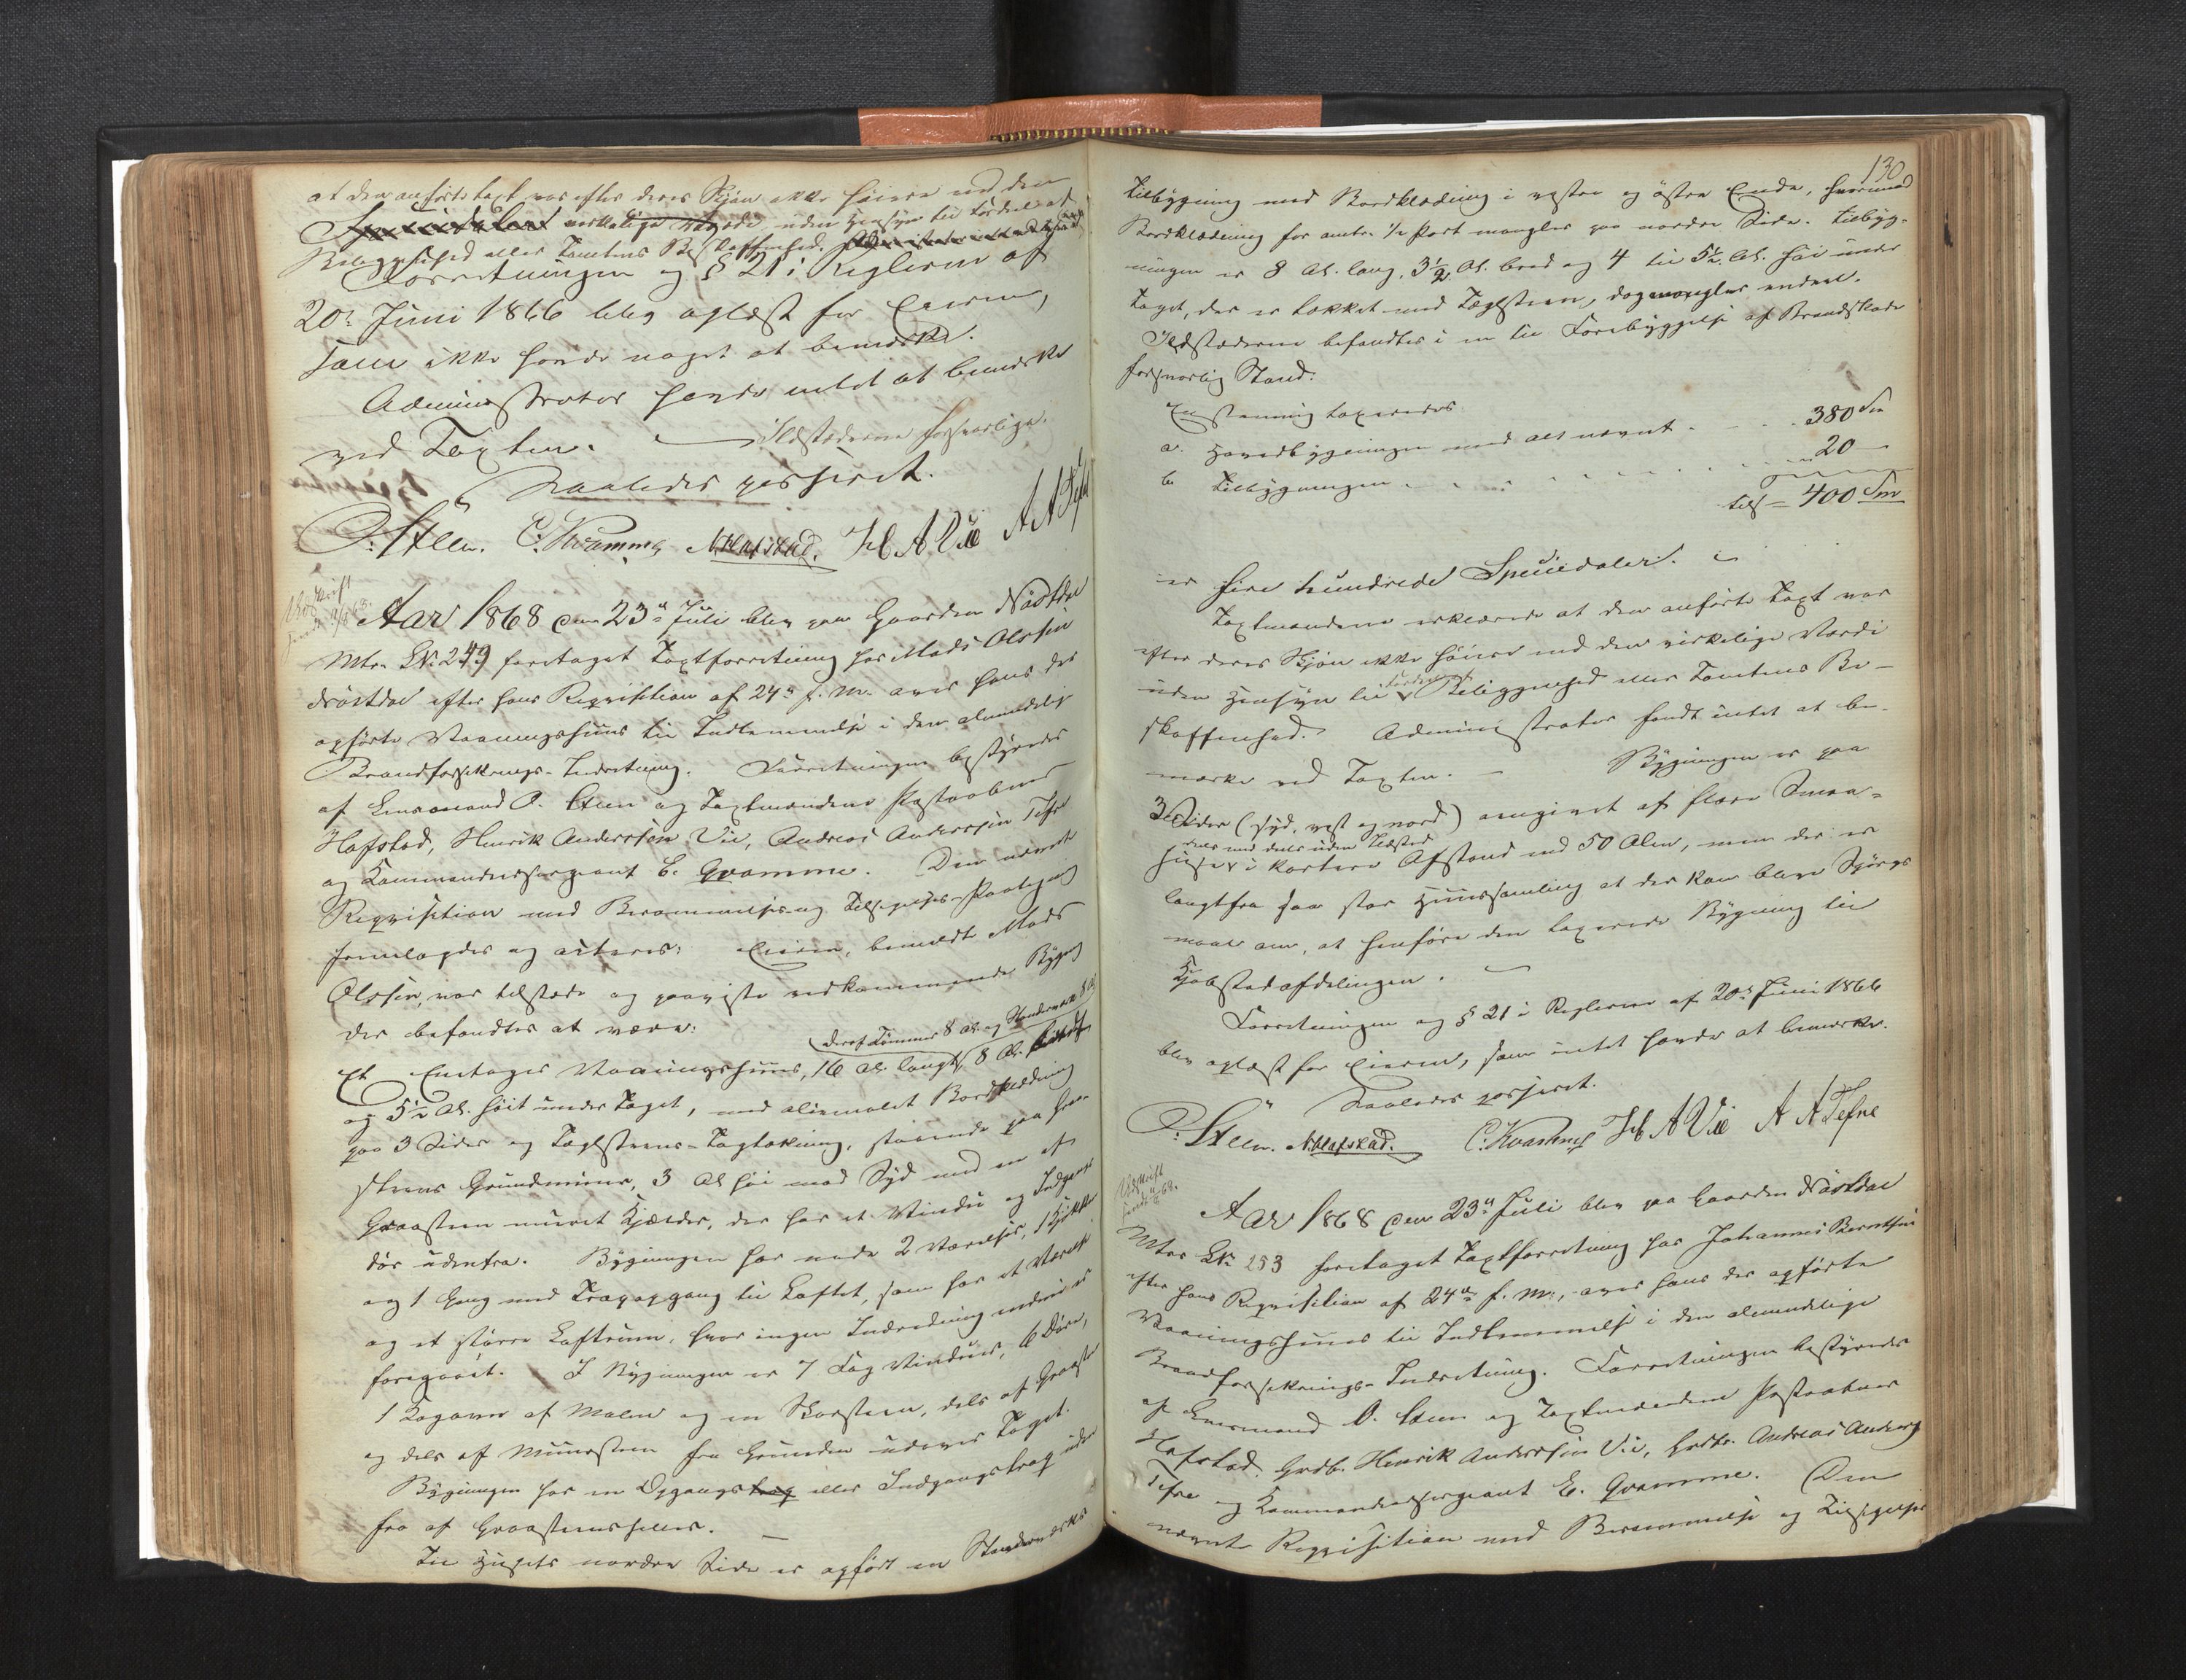 at den anførte Taxt var efter deres Skjøn ikke høiere end den
virkelige Værdi uden Hensyn til Fordel af
Beliggenhed eller Tomtens Beskaffenhed.
Forretningen og § 21 i Regleme af
20de Juni 1866 blev oplæst for Eieren,
som ikke havde noget at bemærke.
Administrator havde intet at bemærke
ved Taxten. — Ildstederne forsvarlige.
Saaledes passeret.
O. Steen. C. Kvamme N. Hafstad. H A Vie A A Tefre
Aar 1868 den 23de Juli blev paa Gaarden Nåstdal
Mtr. LN: 249 foretaget Taxtforretning hos Mads Olssøn
Nåstdal efter hans Reqvisition af 24de f. M. over hans der
opførte Vaaningshuus til Indlemmelse i den almindelige
Brandforsikrings-Indretning. Forretningen bestyredes
af Lensmand O. Steen og Taxtmændene Postaabner
Hafstad, Henrik Anderssøn Vie, Andreas Anderssøn Tefre
og Kommandeersergeant C. Qvamme. Den nævnte
Reqvisition med Berammelses og Tilsigelses-Paategning
fremlagdes og acteres: Eieren, bemeldte Mads
Olssøn, var tilstede og paaviste vedkommende Bygning
der befandtes at være:
deraf Tømmer 8 Al. og Stendærværk 8 Al.
Et Enetages Vaaningshuus, 16 Al. langt, 8 Al. bredt
og 5½ Al. høit under Taget, med oliemalet Bordklædning
paa 3 Sider og Tæglsteens-Tagtækning, staaende paa Graa-
steens Grundmuur, 3 Al. høi mod Syd med en af
Graasteen muret Kjælder, der har et Vindu og Indgangs
dør udenfra. Bygningen har nede 2 Værelser, 1 Kjøkken
og 1 Gang med Trapopgang til Loftet, som har et Værelse
og et større Loftrum, hvor ingen Indredning endnu er
foregaaet. I Bygningen er 7 Fag Vinduer, 6 Døre,
1 Kogovn af Malm og en Skorsteen, dels af Graasteen
og dels af Muursteen fra Grunden udover Taget.
Bygningen har en Opgangstrap eller Indgangstrap uden
fra af Graasteensheller. —
Til Husets nordre Side er opført en Stenderværks
130
Tilbygning med Bordklædning i vestre og østre Ende, hvorimod
Bordklædning for omtr. ½ Part mangler paa nordre Side. Tilbyg-
ningen er 8 Al. lang, 3½ Al. bred og 4 til 5½ Al. høi under
Taget, der er tækket med Tæglsteen, dog mangler endeel.
Ildstederne befandtes i en til Forebyggelse af Brandskade
forsvarlig Stand.
Enstemmig taxeredes
a. Hovedbygningen med alt nævnt . . . 380 Sp
b. Tilbygningen . . . . . . . . 20 —
tils = 400 Spd
er fire hundrede Speciedaler.
Taxtmændene erklærede at den anførte Taxt var
efter deres Skjøn ikke høiere end den virkelige Værdi
uden Hensyn til Fordel af Beliggenhed eller Tomtens Be-
skaffenhed. Administrator fandt intet at be-
mærke ved Taxten. — Bygningen er paa
3 Sider (syd, vest og nord) omgivet af flere Smaa-
dels med dels uden Ildsted
huse i kortere Afstand end 50 Alen, men der er
langtfra saa stor Huussamling at der kan blive Spørgs
maal om, at henføre den taxerede Bygning til
Kjøbstadafdelingen. —
Forretningen og § 21 i Regleme af 20de Juni 1866
blev oplæst for Eieren, som intet havde at bemærke.
Saaledes passeret.
O. Steen. N. Hafstad. C. Kvamme H A Vie A A Tefre
Aar 1868 den 23de Juli blev paa Gaarden Nåstdal
Mtr LN: 253 foretaget Taxtforretning hos Johannes Berntsen
efter hans Reqvisition af 24de f. M., over hans der opførte
Vaaningshuus til Indlemmelse i den almindelige
Brandforsikrings-Indretning. Forretningen bestyredes
af Lensmand O. Steen og Taxtmændene Postaabner
Hafstad, Grdb. Henrik Anderssøn Vie, Grdbr. Andreas Anders
Tefre og Kommandeersergeant C. Qvamme. Den
nævnte Reqvisition med Berammelse og Tilsigelse